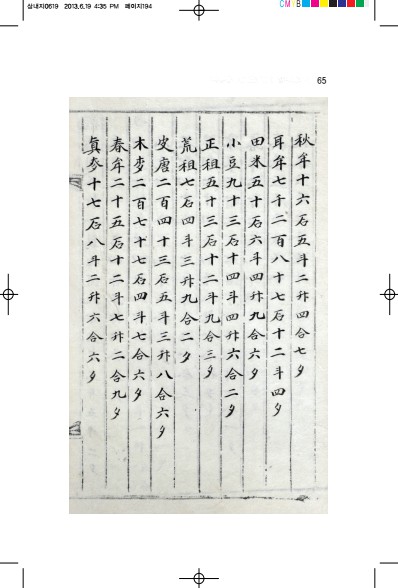 삼내지0619 2013.6.19 4:35 PM 페이지194
CM B
65
秋牟十六石五斗二升四合七夕
耳牟七千二百八十七石十二斗四夕
田米五十石六斗四升九合六夕
小豆九十三石十四斗四升六合二夕
正租五十三石十二斗九合三夕
荒租七石四斗三升九合二夕
皮唐二百四十三石五斗三升八合六夕
木麥二百七十七石四斗七合六夕
春牟二十五石十二斗七升二合九夕
眞麥十七石八斗二升六合六夕